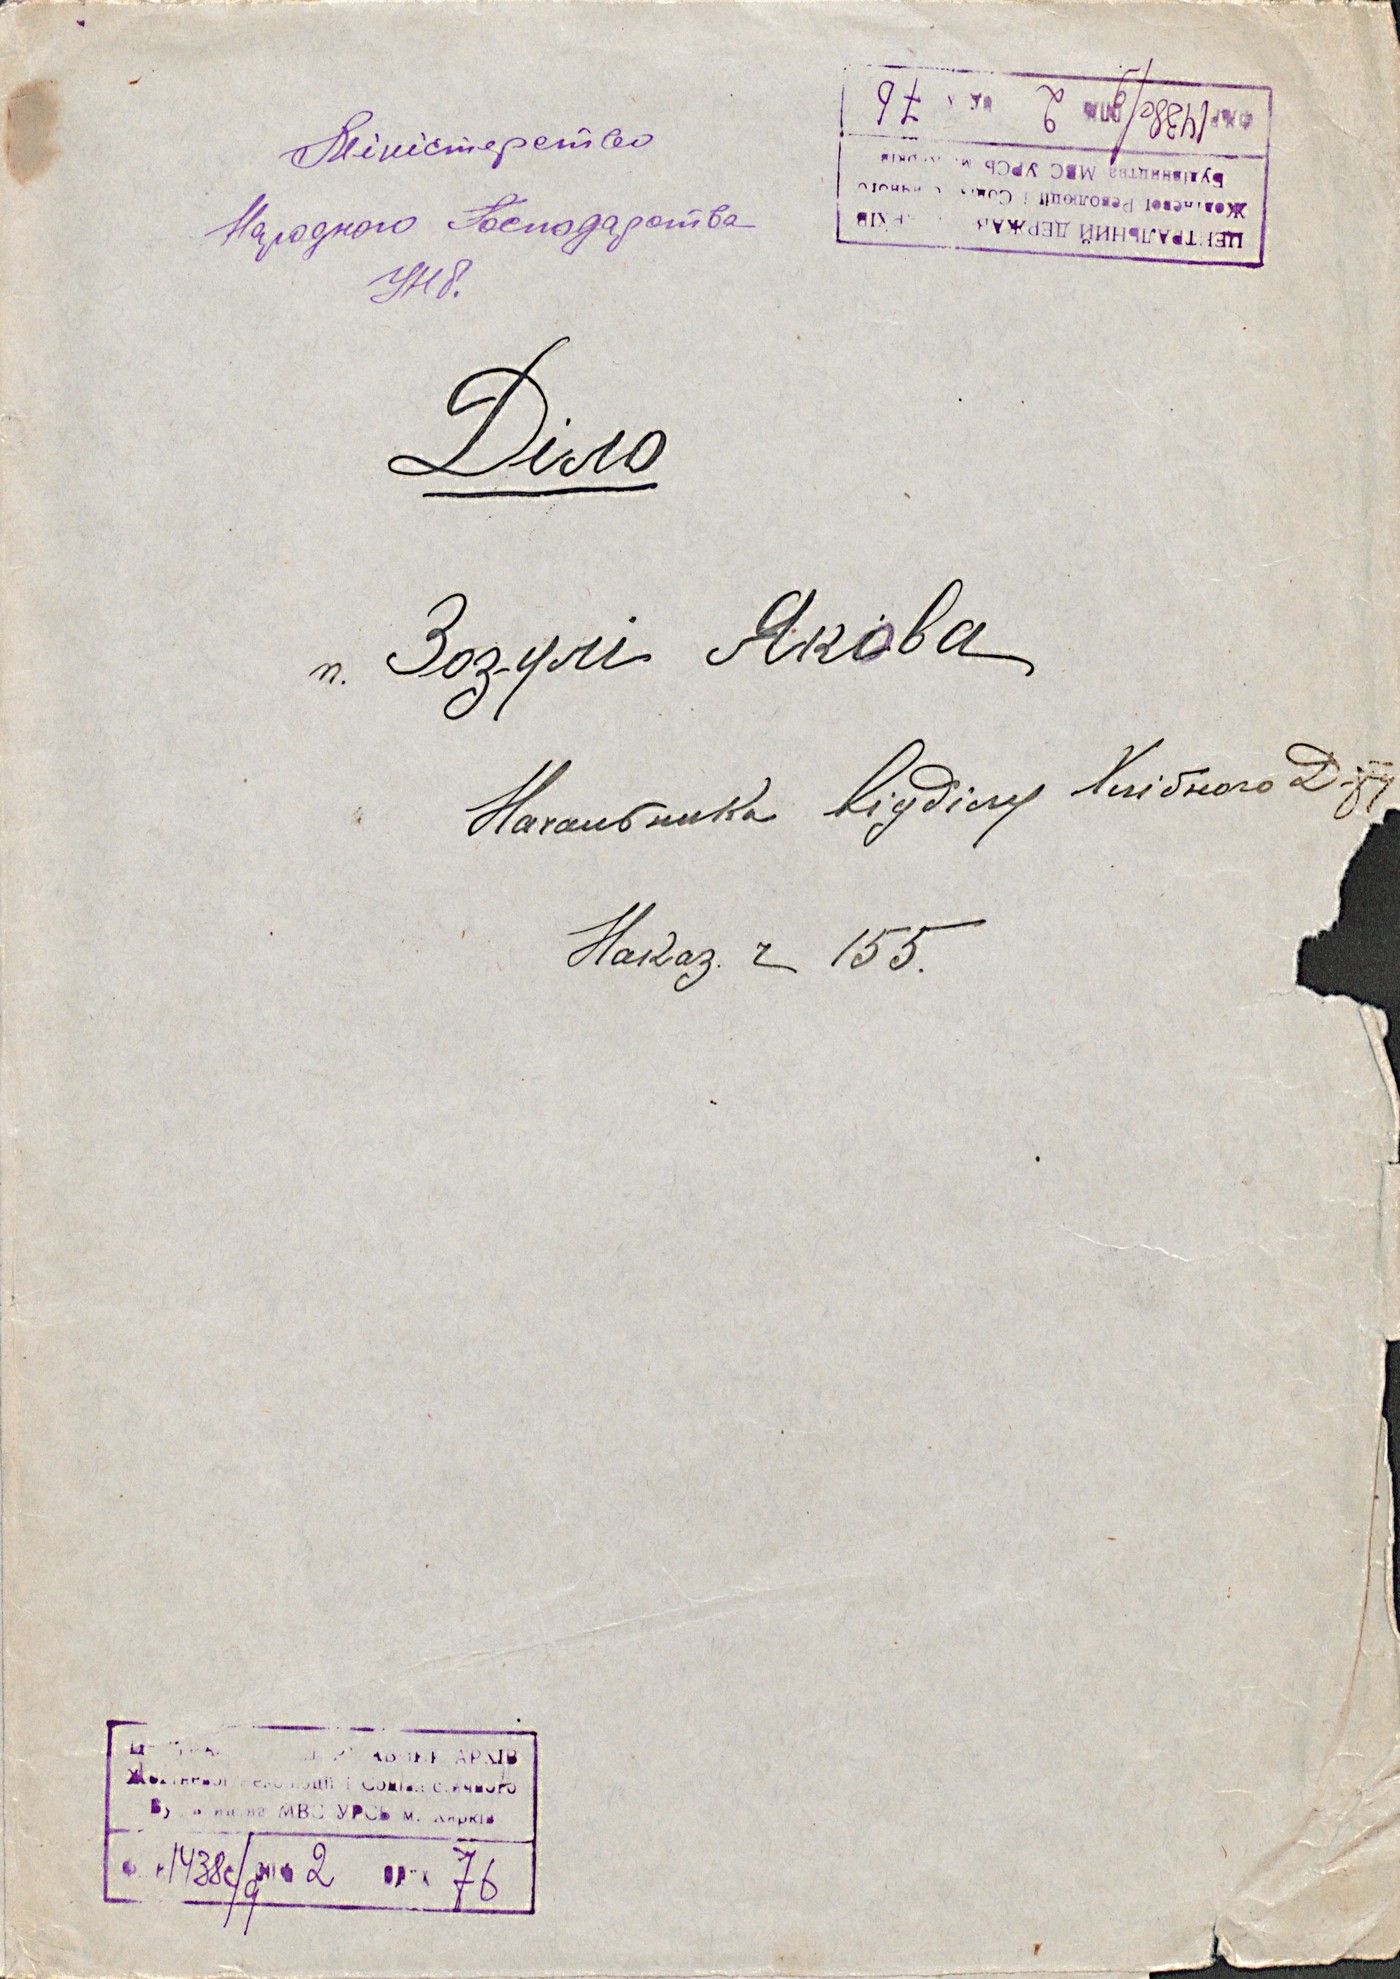 Міністерство
Народного Господарства
УНР.
ФОНД 1438с/9 ОПИС 2 76
Будівництва МВС УРСР м. Харків
Жовтневої Революції і Соціалістичного
ЦЕНТРАЛЬНИЙ ДЕРЖАВНИЙ АРХІВ
Діло
п. Зозулі Якова
Начальника відділу Хлібного
Наказ. ч 155.
АРХІВ
Жовтневої Революції і Соціалістичного
Будівництва МВС УРСР м. Харків
1438с/9 опис 2 76